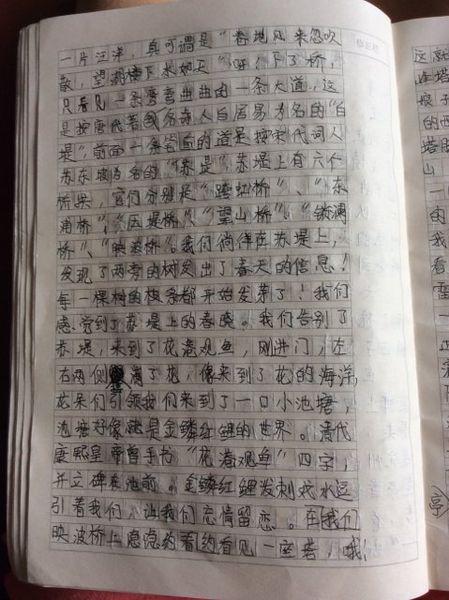 一片汪洋，真可谓是“卷地风来忽吹
散，望湖楼下水如天”呀！下了桥，
只看见一条弯弯曲曲由一条大道，这
是按唐代著名诗人白居易为名的“白
堤”前面一条笔直的道是按宋代词人
苏东坡为名的“苏堤”，苏堤上有六个
桥梁，它们分别是“跨虹桥”、“东
浦桥”、“压堤桥”、“望山桥”、“锁澜
桥”、“映波桥”。我们徜徉在苏堤上，
发现了两旁的树发出了春天的信息！
每一棵树的枝条都开始发芽了！我们
感觉到了苏堤上的春晓。我们告别了
苏堤，来到了花港观鱼，刚进门，左
右两侧满了花，像来到了花的海洋，
花朵们引领我们来到了一口小池塘，
池塘好像就是金鳞红鲤的世界。清代
康熙皇帝曾手书“花港观鱼”四字，
并立碑在池前。金鳞红鲤发刺戏水逗
引着我们，让我们恋情留恋。在我们
映波桥上隐隐约看约看见一座塔，哦！
这就
连塔
娘子
的西
塔
山
一
的
我
看
雷
亭